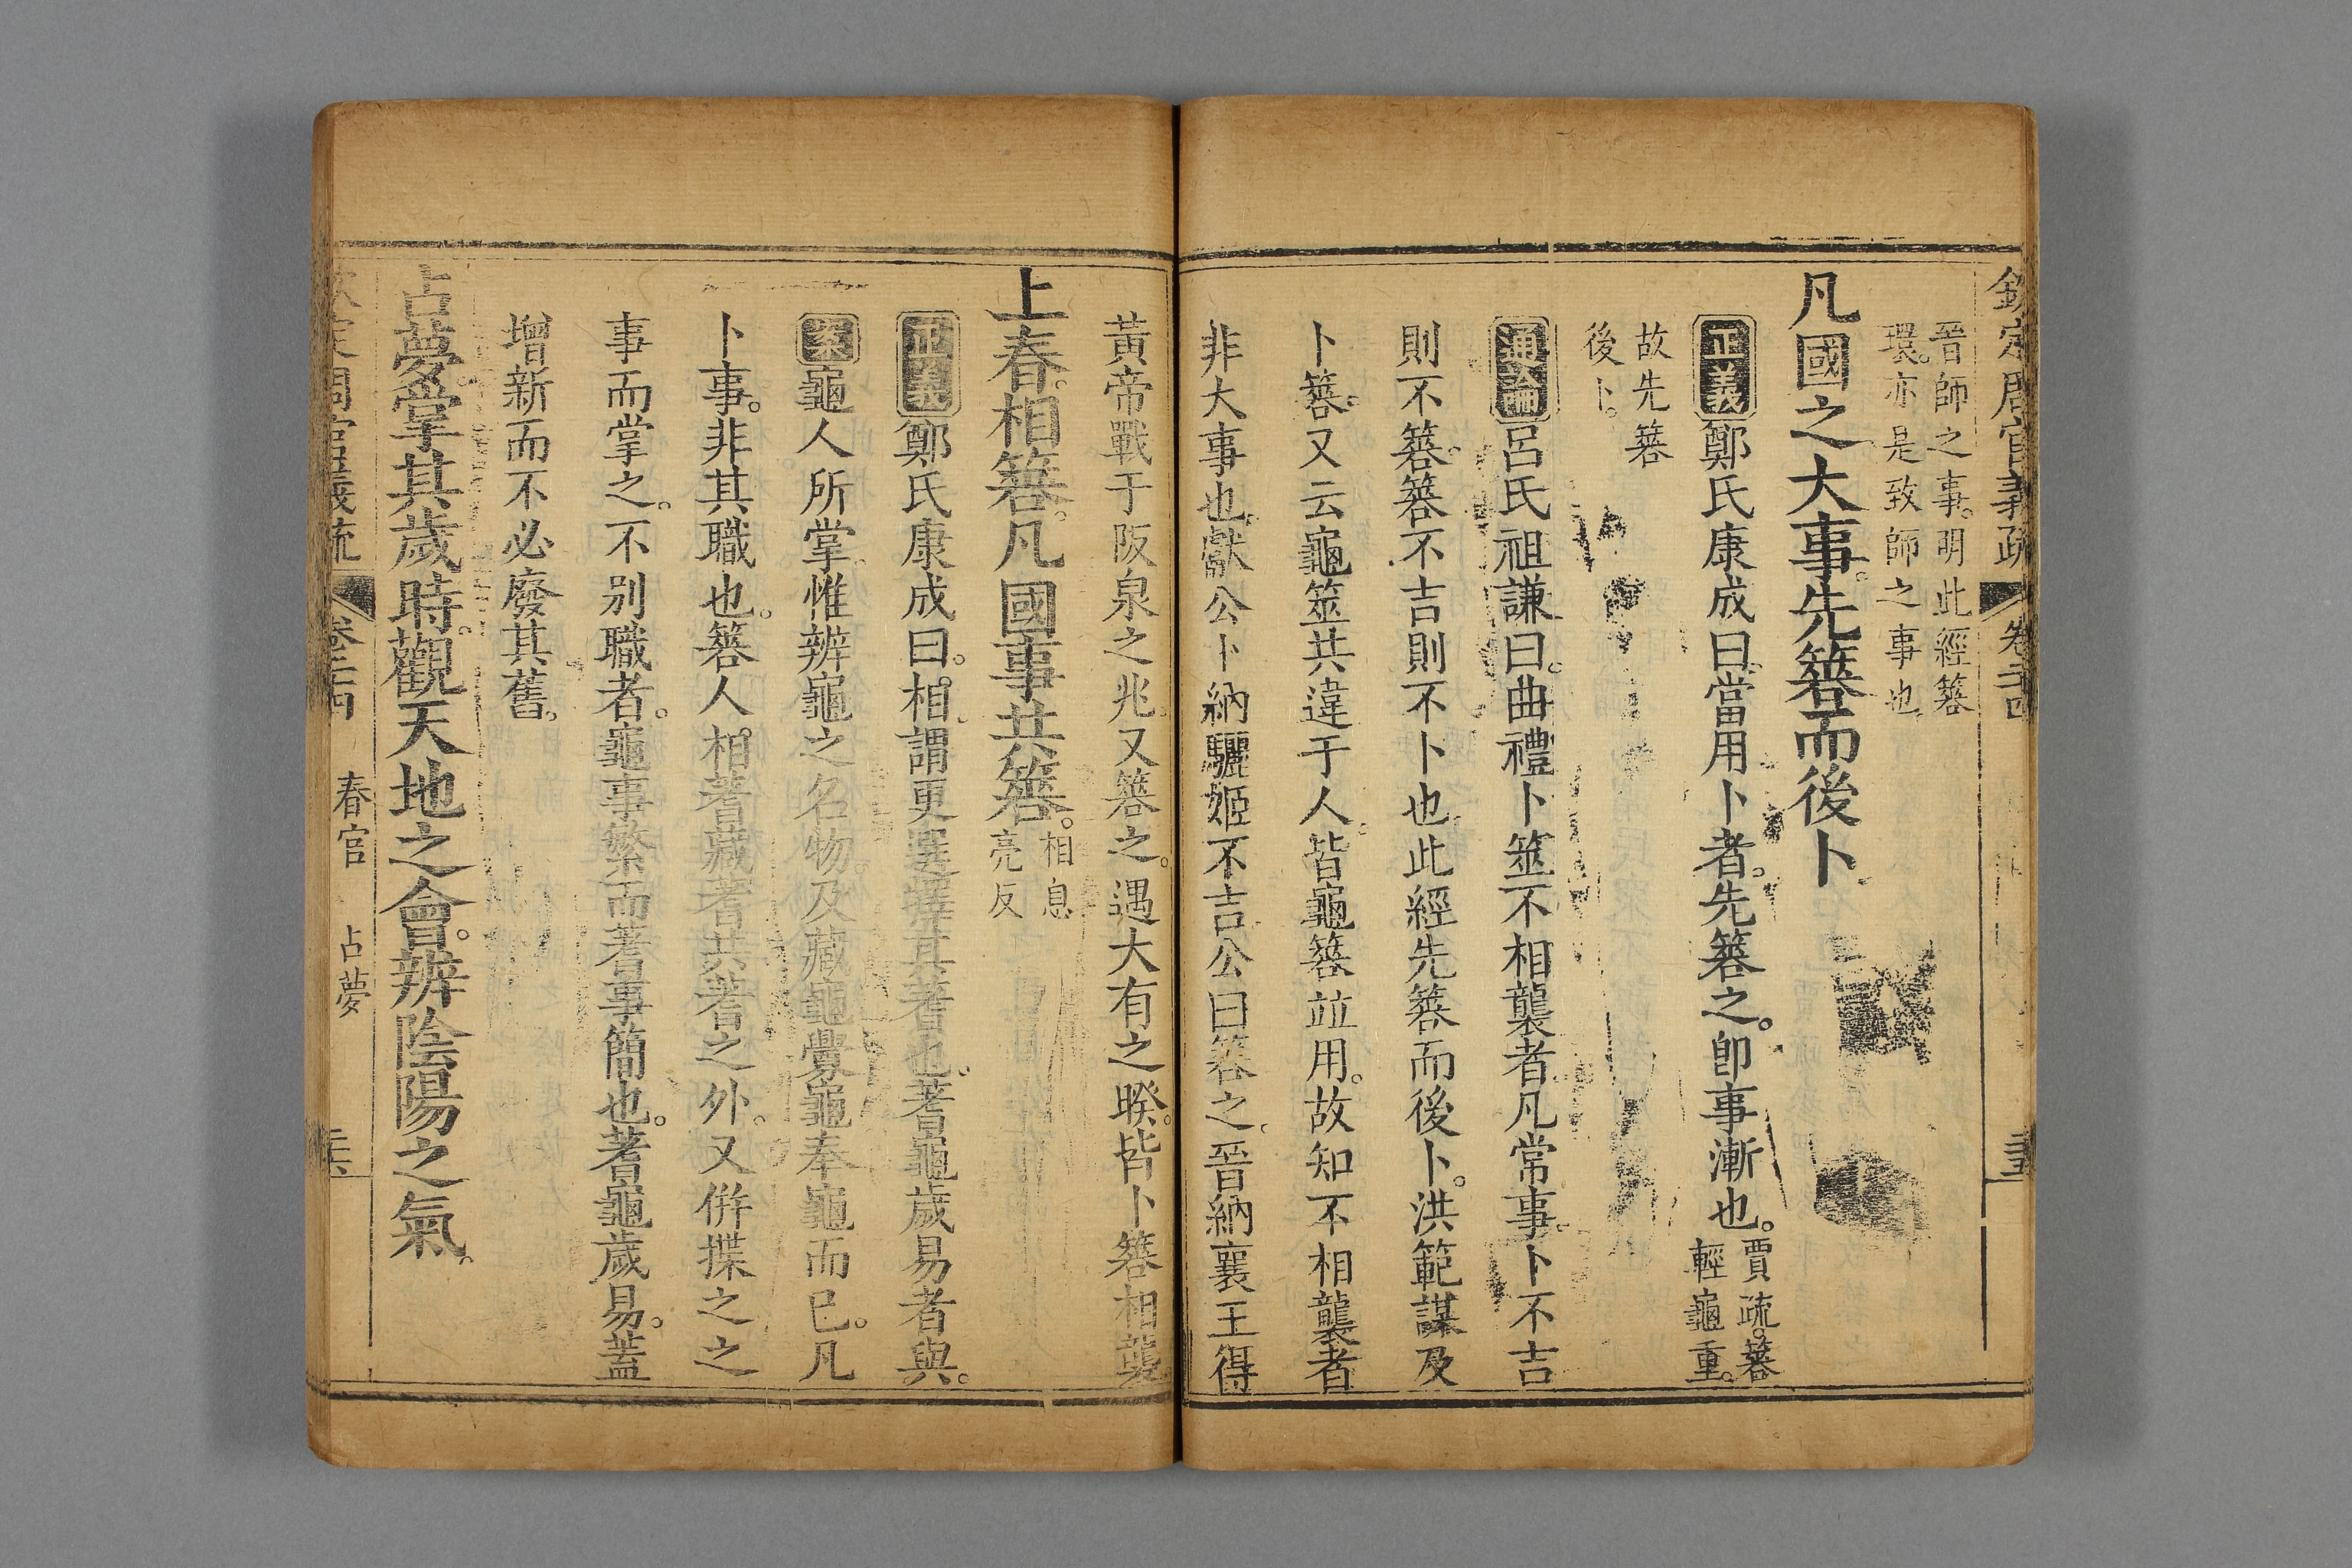 欽定周官義疏 卷二十四
晉師之事。明此經簭
環。亦是致師之事也
凡國之大事。先簭而後卜。
正義鄭氏康成曰。當用卜者。先簭之。卽事漸也。
賈疏。簭
輕龜重。
故先簭
後卜。
通論呂氏祖謙曰。曲禮卜筮不相襲者。凡常事。卜不吉
則不簭。簭不吉則不卜也。此經先簭而後卜。洪範謀及
卜簭。又云龜筮共違于人。皆龜簭並用。故知不相襲者
非大事也。獻公卜納驪姬不吉。公曰簭之。晉納襄王得
黃帝戰于阪泉之兆。又簭之。遇大有之睽。皆卜簭相襲。
上春。相簭。凡國事共簭。
相息
亮反
正義鄭氏康成曰。相。謂更選擇其蓍也。蓍龜歲易者與。
案龜人所掌。惟辨龜之名物。及藏龜釁龜奉龜而已。凡
卜事。非其職也。簭人相蓍藏蓍共蓍之外。又併揲之之
事而掌之。不别職者。龜事繁而蓍事簡也。蓍龜歲易。蓋
增新而不必廢其舊。
占夢。掌其歲時。觀天地之會。辨陰陽之氣。
欽定周官義疏 卷二十四 春官 占夢